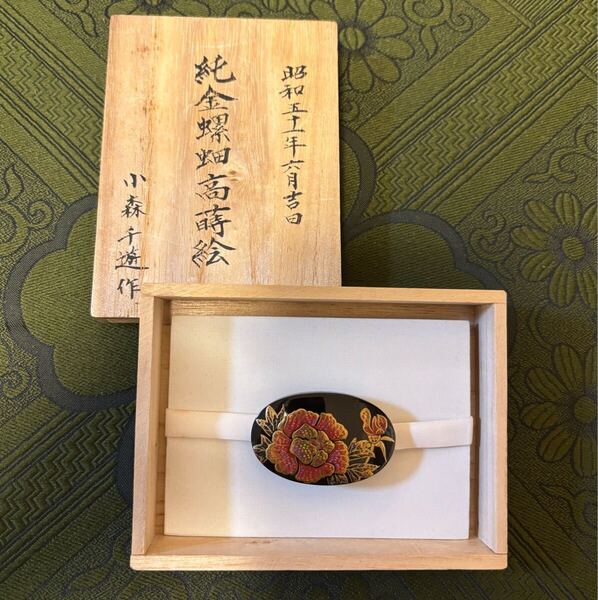 昭和五十一年六月吉日
純金螺鈿高蒔絵
小森千遊作